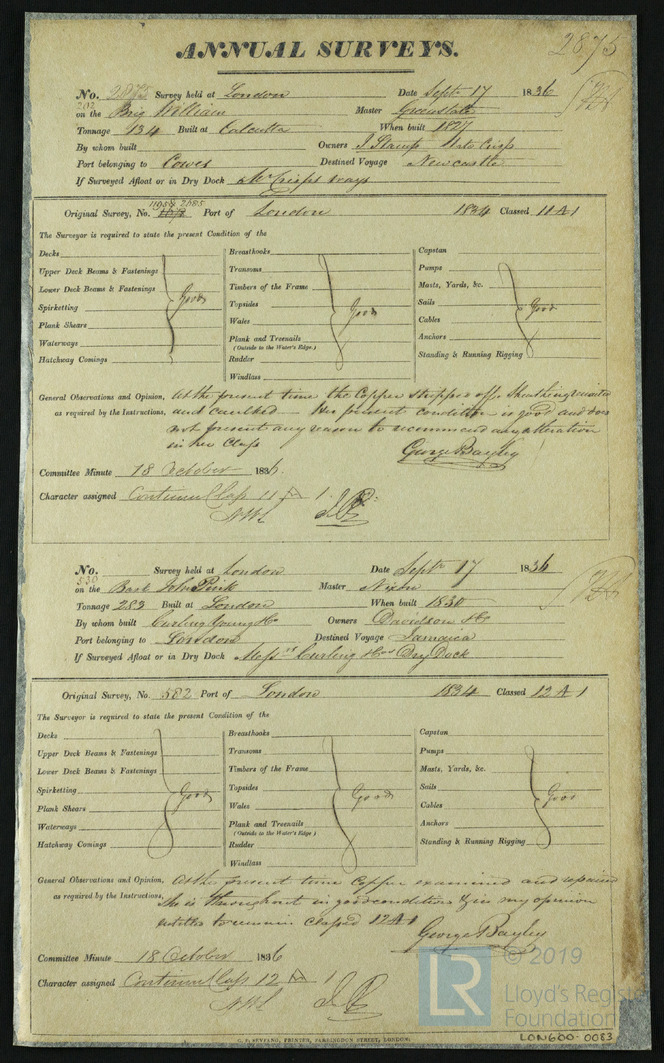 2875
ANNUAL SURVEYS.
No. 2875 Survey held at London Date Septr 17 1836
202
on the Brig William Master Greenslate
Tonnage 134 Built at Calcutta When built 1827
By whom built Owners J Stamp Crisp
Port belonging to Cowes Destined Voyage Newcastle
If Surveyed Afloat or in Dry Dock Mr Crisps ways
Original Survey, No. Port of London 1834 Classed 11 A 1
The Surveyor is required to state the present Condition of the
Decks Breasthooks Capstan
Upper Deck Beams & Fastenings Transoms Pumps
Lower Deck Beams & Fastenings Timbers of the Frame Masts, Yards, &c.
Spirketting Good Topsides Good Sails Good
Plank Shears Wales Cables
Waterways Plank and Treenails Anchors
(Outside to the Water's Edge.)
Hatchway Comings Rudder Standing & Running Rigging
Windlass
General Observations and Opinion, At the present time the Copper stripped off, Sheathing
as required by the Instructions, and caulked - Her present condition is good and does
not present any reason to recommend any alteration
in her Class
George Bayley
Committee Minute 18 October 1836.
Character assigned Continued Class 11 A 1
No. Survey held at London Date Septr 17 1836
530
on the Bark John Pink Master Nixon
Tonnage 283 Built at London When built 1830
By whom built Curling Young & Co Owners Davidson & Co
Port belonging to London Destined Voyage Jamaica
If Surveyed Afloat or in Dry Dock Messrs Curling & Cos Dry Dock
Original Survey, No. 582 Port of London 1834 Classed 12 A 1
The Surveyor is required to state the present Condition of the
Decks Breasthooks Capstan
Upper Deck Beams & Fastenings Transoms Pumps
Lower Deck Beams & Fastenings Timbers of the Frame Masts, Yards, &c.
Spirketting Good Topsides Good Sails Good
Plank Shears Wales Cables
Waterways Plank and Treenails Anchors
(Outside to the Water's Edge.)
Hatchway Comings Rudder Standing & Running Rigging
Windlass
General Observations and Opinion, At the present time Copper examined and repaired
as required by the Instructions, She is throughout in good condition & in my opinion
entitled to remain classed 12 A 1
George Bayley
Committee Minute 18 October 1836
Character assigned Continued Class 12 A 1
LR © 2019
Lloyd's Register
Foundation
PRINTER, FARRINGDON STREET, LONDON.
LON600-0083